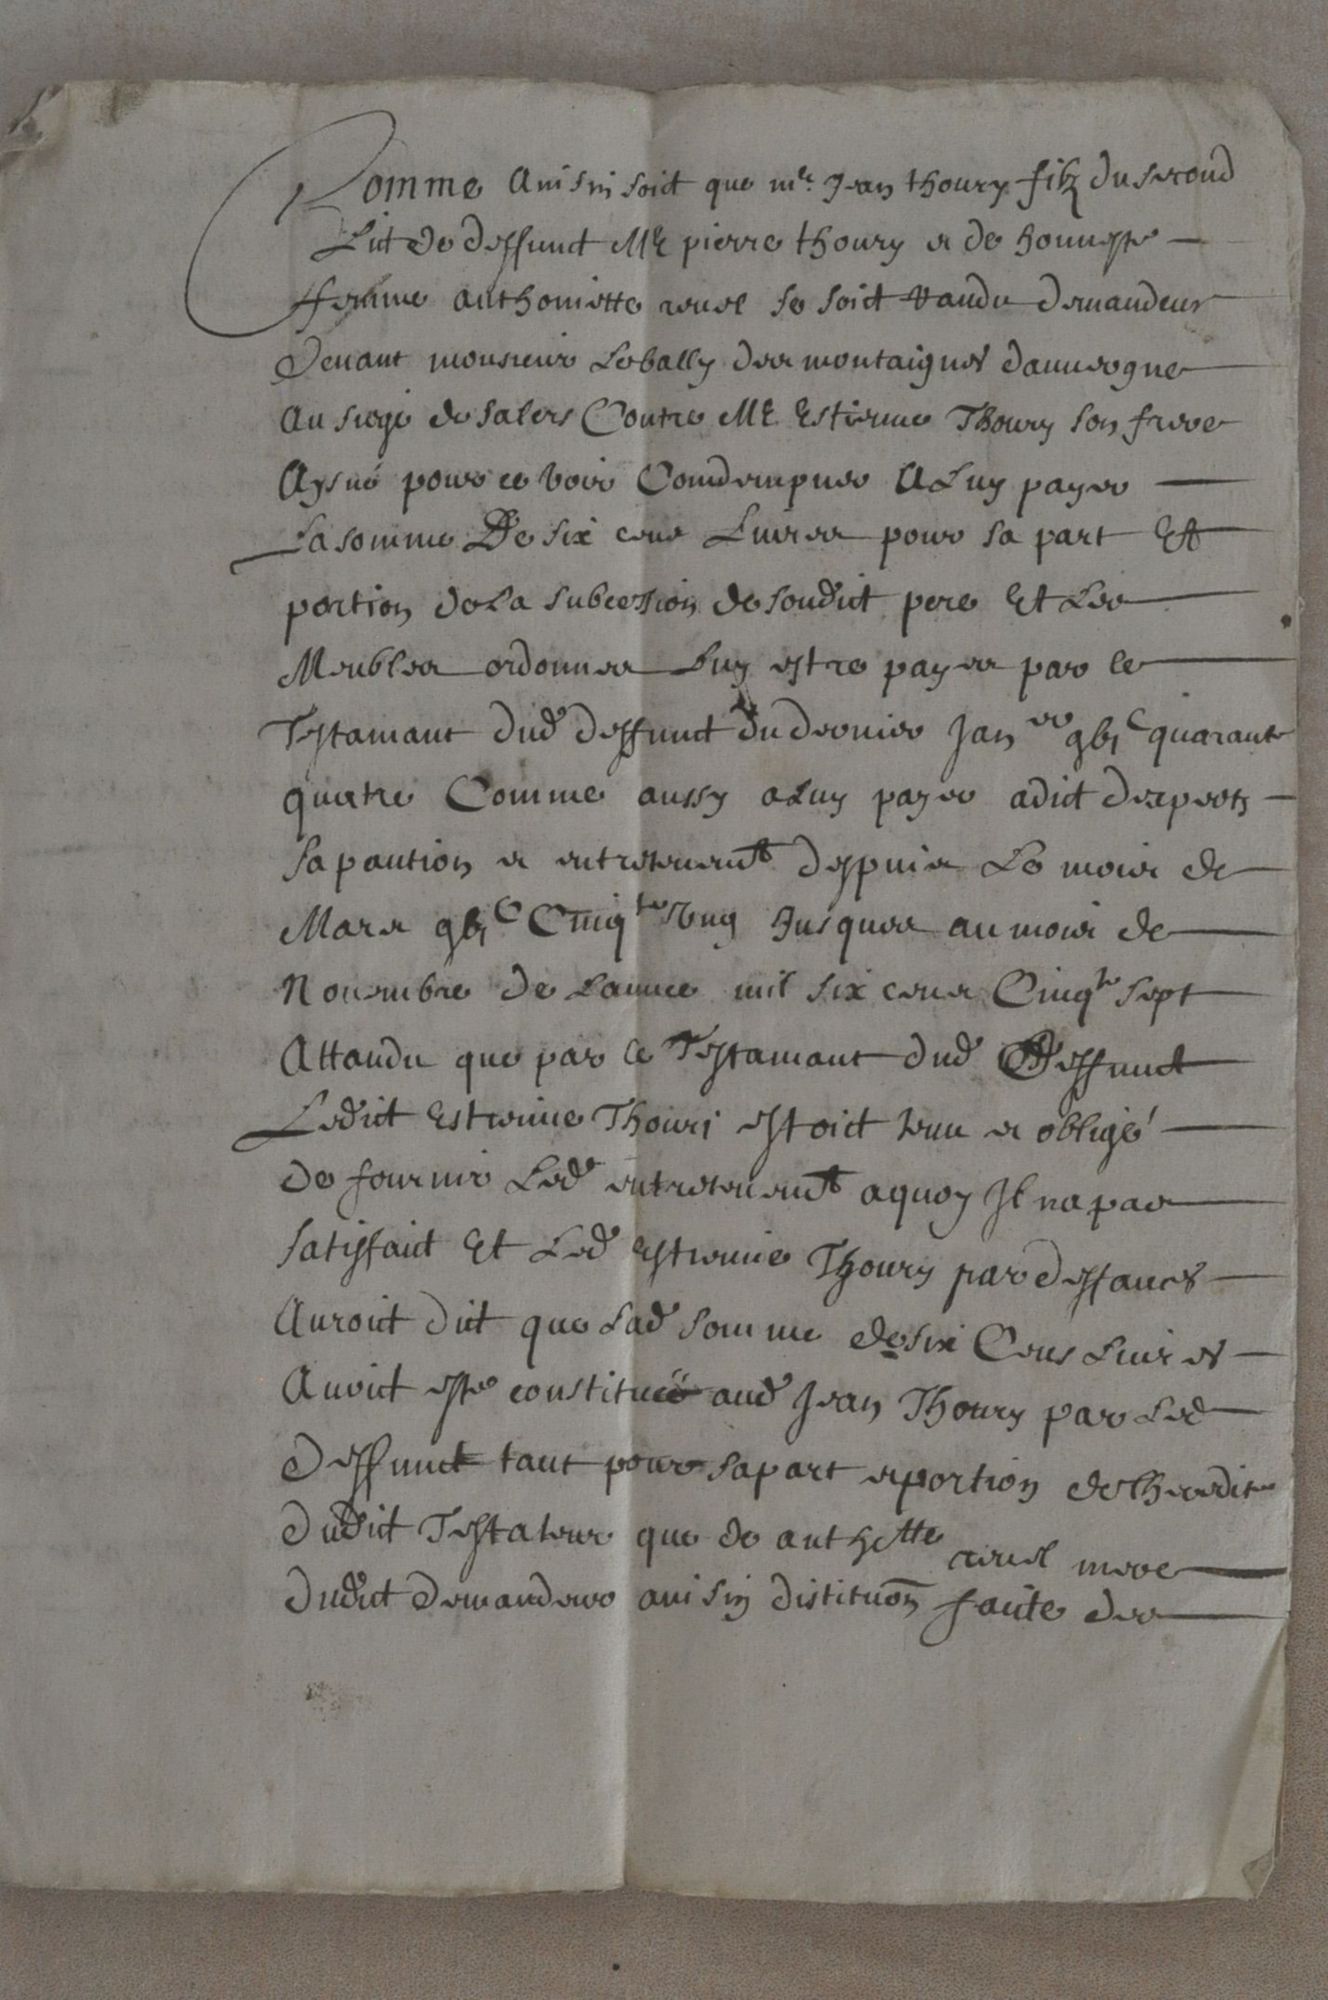 Comme ainsin soict que me. Jean thoury filz du second
Lict de deffunct Me pierre thoury et de honneste
femme anthoniette revel se soict randu demandeur
Devant monsieur Le bally des montaignes dauvergne
Au siege de salers Contre Me Estienne Thoury son frere
Aysné pour ce voir Comdempner A Luy payer
La somme De six cens Livres pour sa part Et
portion de La subcession de sondict pere Et Les
Meubles ordonnes Luy estre payes par le
Testamant dud deffunct du dernier Janer gbic quarante
quatre Comme aussy a Luy payer a dict dexperts
sa pantion et entretenemt despuis Le mois de
Mars gbic Cinqte Ung Jusques au mois de
Novembre de Lannee mil six cens Cinqte sept
Attandu que par le Testamant dud Deffunct
Ledict Estienne Thouri estoict tenu et obligé
de fournir Led entretenemt a quoy Il na pas
satisfaict Et Led estienne Thoury par deffances
Auroict dict que Lad somme de six Cens Livres
Avoict este constituée aud Jean Thoury par Led
Deffunct tant pour sa part et portion de lheredite
dudict Testateur que de anthtte revel mere
dudict Demandeur ainsin distituon faicte des